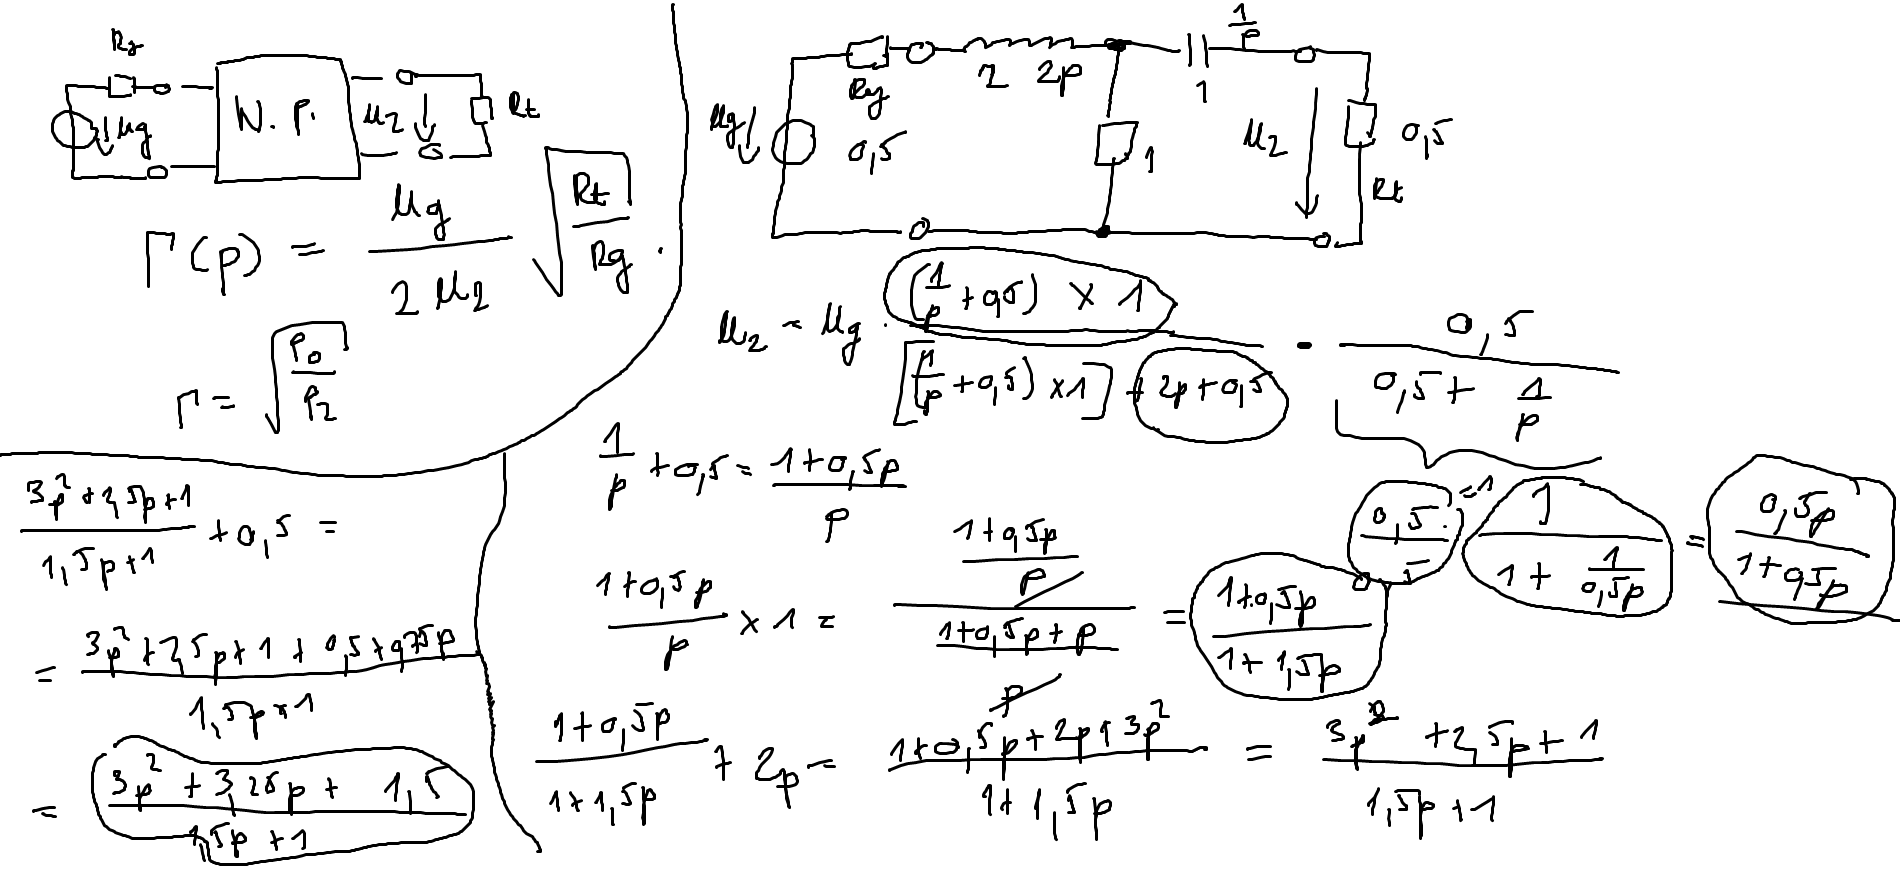 Rg
Ug
N. P.
U2
Rt
Γ(p) = Ug / (2 U2) √(Rt / Rg) .
Γ = √(P0 / P2)
Ug
Rg
0,5
2 2p
1
1/p
1
U2
0,5
Rt
U2 = Ug · ((1/p + 0,5) × 1) / ([(1/p + 0,5) × 1] + 2p + 0,5) · 0,5 / (0,5 + 1/p)
1/p + 0,5 = (1 + 0,5p) / p
0,5 / 0,5 = 1
1 / (1 + 1/(0,5p)) = 0,5p / (1 + 0,5p)
(1 + 0,5p) / p × 1 = ((1 + 0,5p) / p) / ((1 + 0,5p + p) / p) = (1 + 0,5p) / (1 + 1,5p)
(1 + 0,5p) / (1 + 1,5p) + 2p = (1 + 0,5p + 2p + 3p²) / (1 + 1,5p) = (3p² + 2,5p + 1) / (1,5p + 1)
(3p² + 2,5p + 1) / (1,5p + 1) + 0,5 =
= (3p² + 2,5p + 1 + 0,5 + 0,75p) / (1,5p + 1)
= (3p² + 3,25p + 1,5) / (1,5p + 1)